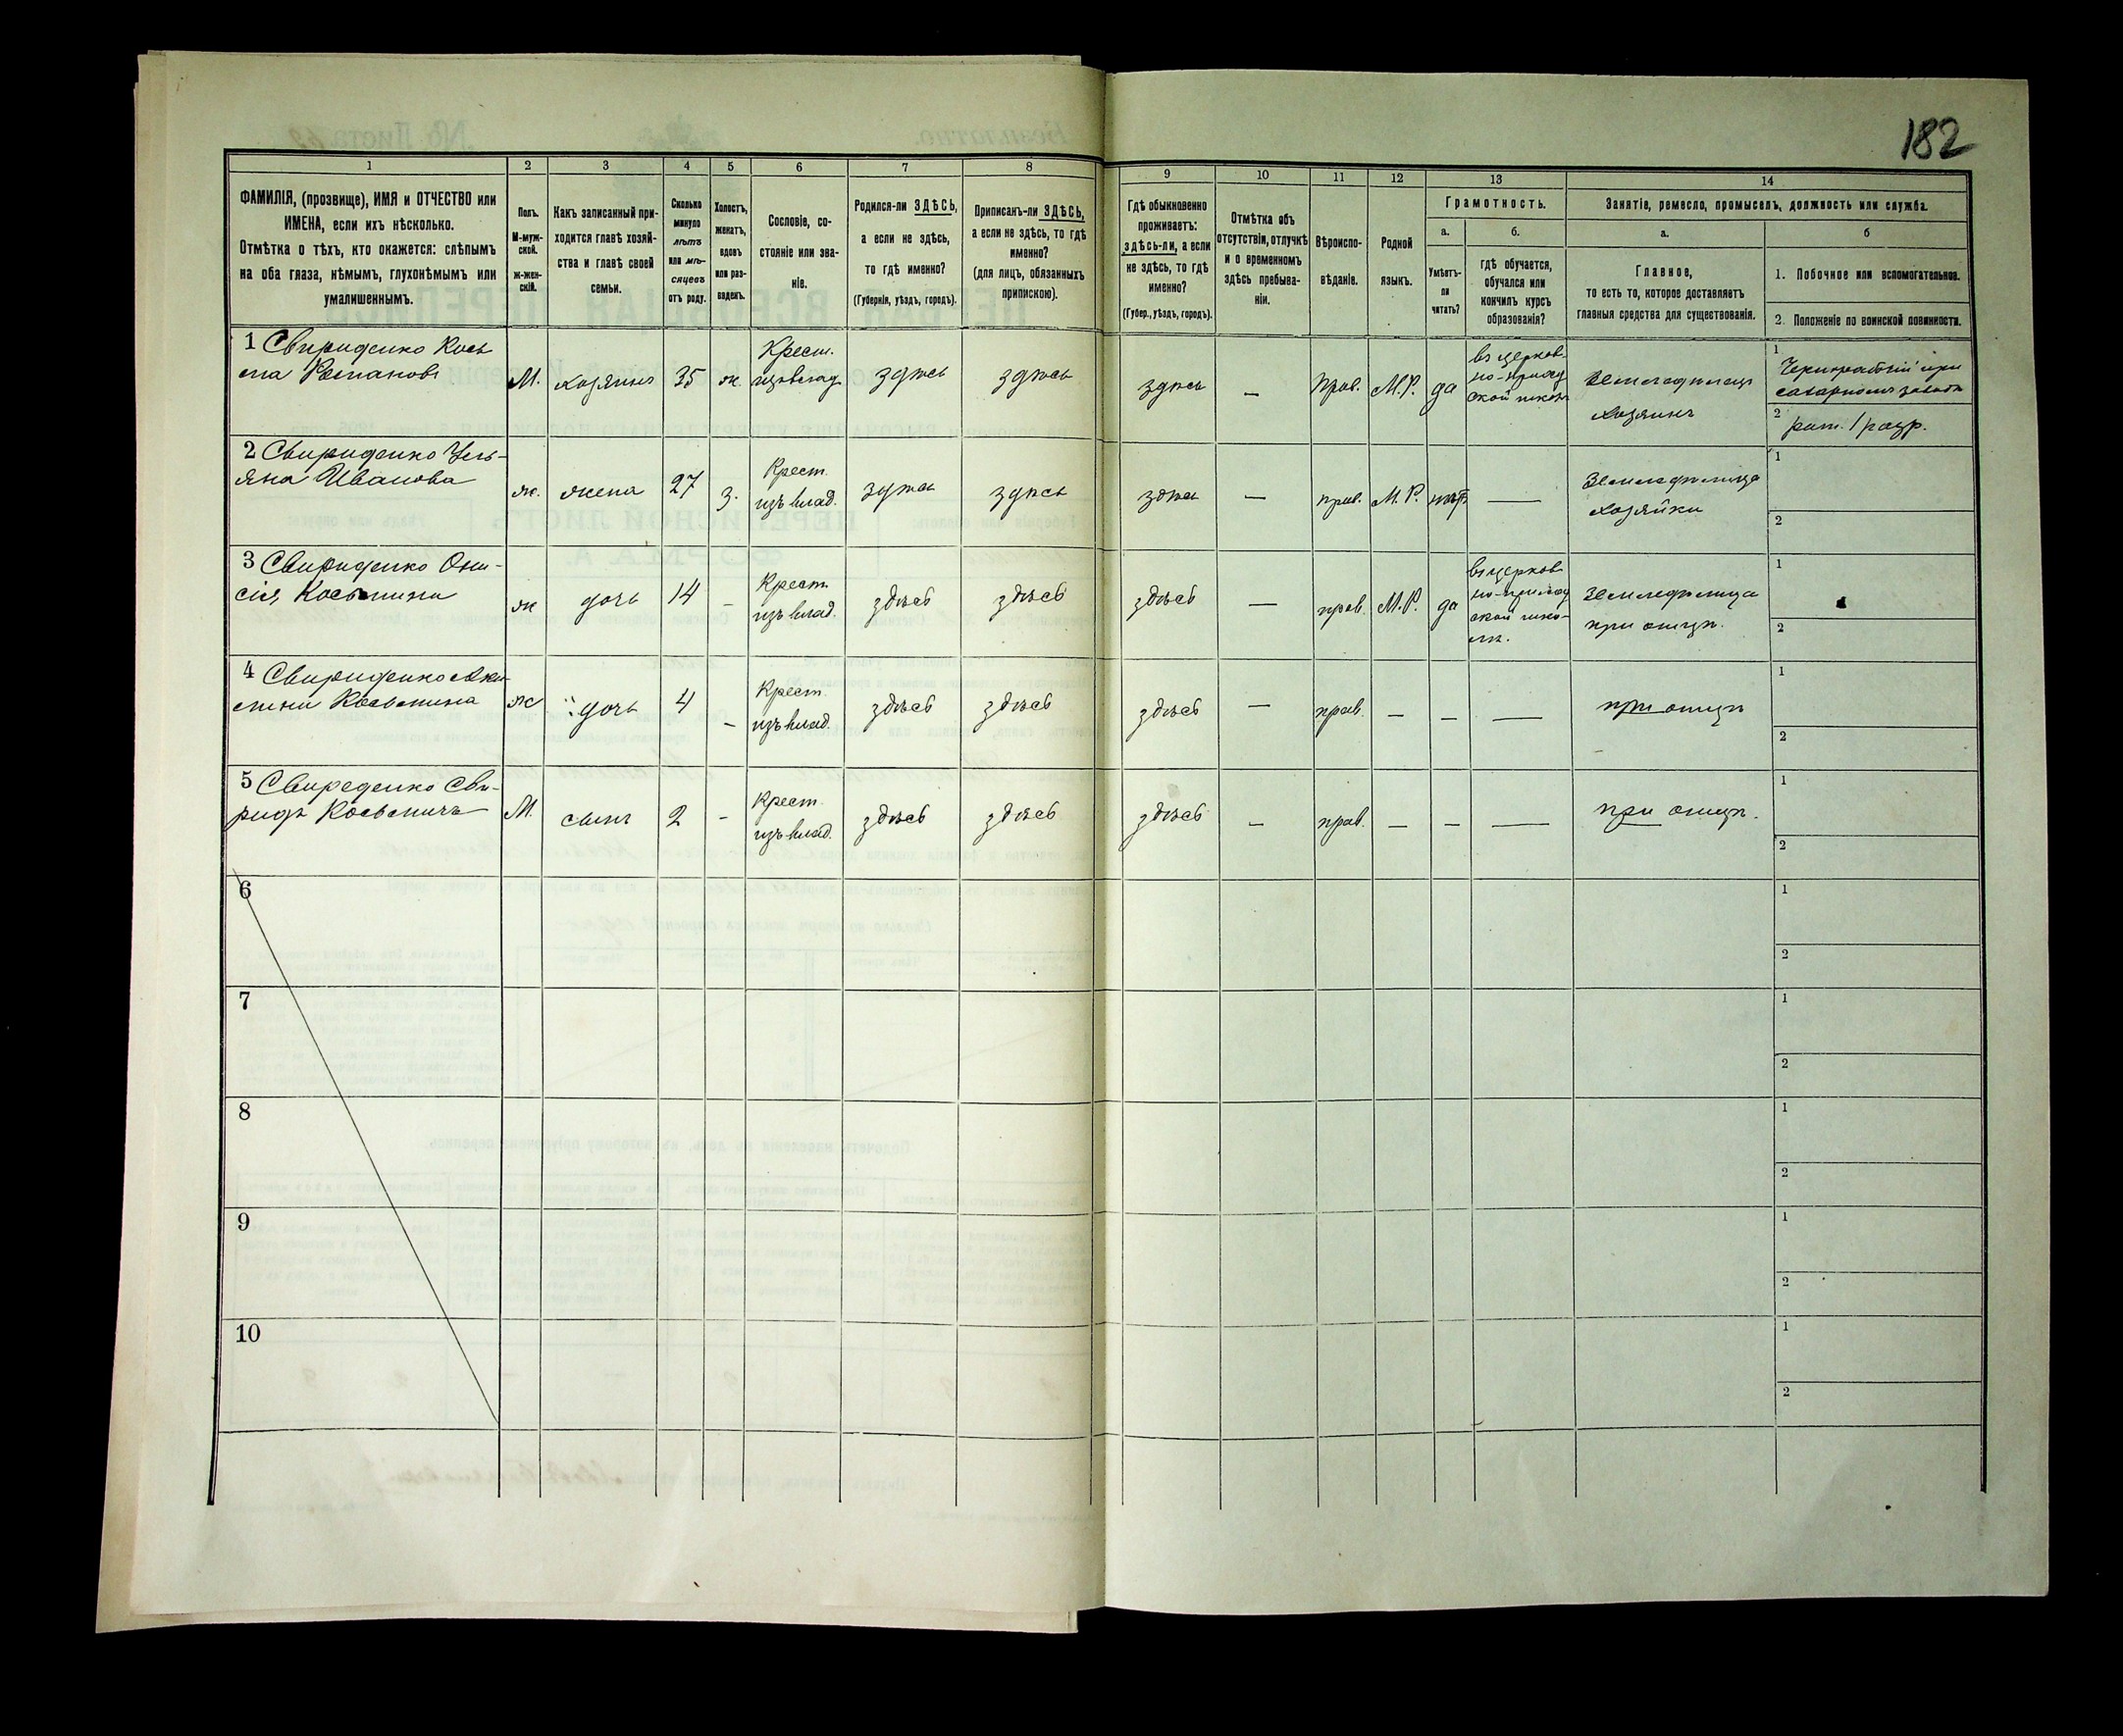 182
1 2 3 4 5 6 7 8 9 10 11 12 13 14
ФАМИЛІЯ, (прозвище), ИМЯ и ОТЧЕСТВО или
ИМЕНА, если ихъ нѣсколько.
Отмѣтка о тѣхъ, кто окажется: слѣпымъ
на оба глаза, нѣмымъ, глухонѣмымъ или
умалишеннымъ.
Полъ.
М-муж-
ской.
ж-жен-
скій.
Какъ записанный при-
ходится главѣ хозяй-
ства и главѣ своей
семьи.
Сколько
минуло
лѣтъ
или мѣ-
сяцевъ
отъ роду.
Холостъ,
женатъ,
вдовъ
или раз-
веденъ.
Сословіе, со-
стояніе или зва-
ніе.
Родился-ли ЗДѢСЬ,
а если не здѣсь,
то гдѣ именно?
(Губернія, уѣздъ, городъ).
Приписанъ-ли ЗДѢСЬ,
а если не здѣсь, то гдѣ
именно?
(для лицъ, обязанныхъ
припискою).
Гдѣ обыкновенно
проживаетъ:
здѣсь-ли, а если
не здѣсь, то гдѣ
именно?
(Губер., уѣздъ, городъ).
Отмѣтка объ
отсутствіи, отлучкѣ
и о временномъ
здѣсь пребыва-
ніи.
Вѣроиспо-
вѣданіе.
Родной
языкъ.
Грамотность.
а.
Умѣетъ-
ли
читать?
б.
гдѣ обучается,
обучался или
кончилъ курсъ
образованія?
Занятіе, ремесло, промыселъ, должность или служба.
а.
Главное,
то есть то, которое доставляетъ
главныя средства для существованія.
б
1. Побочное или вспомогательное.
2. Положеніе по воинской повинности.
1 Свириденко Кось
ма
М. хозяинъ 35 ж.
Крест.
здѣсь здѣсь здѣсь — Прав. М.Р. да
въ церков-
но-приход
ской школѣ
Земледѣлецъ
хозяинъ
1
Чернорабочій при
сахарномъ заводѣ
2 рат. 1 разр.
2 Свириденко Уль-
яна Иванова
ж. жена 27 з.
Крест.
изъ влад.
здѣсь здѣсь здѣсь — прав. М.Р. нѣтъ —
Земледѣлица
хозяйка
1
2
3 Свириденко Они-
сія Косьмина
ж дочь 14 –
Крест.
изъ влад.
здѣсь здѣсь здѣсь — прав. М.Р. да
въ церков-
но-приход
ской шко-
лѣ.
Земледѣлица
при отцѣ.
1
2
4 Свириденко
Косьмина
ж дочь 4 –
Крест.
изъ влад.
здѣсь здѣсь здѣсь — прав. – – —
при отцѣ
1
2
5 Свиреденко Сви-
ридъ Косьмичъ
М. сынъ 2 –
Крест.
изъ влад.
здѣсь здѣсь здѣсь – прав. – – —
при отцѣ.
1
2
6
1
2
7
1
2
8
1
2
9
1
2
10
1
2